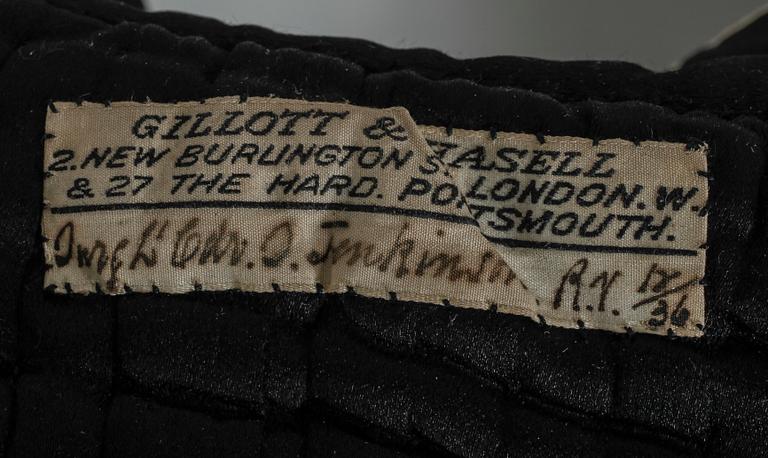 GILLOTT & HASELL
2. NEW BURLINGTON S. LONDON. W.
& 27 THE HARD. PORTSMOUTH.
Lt Cdr. J. Jenkinson R.N. 12/36